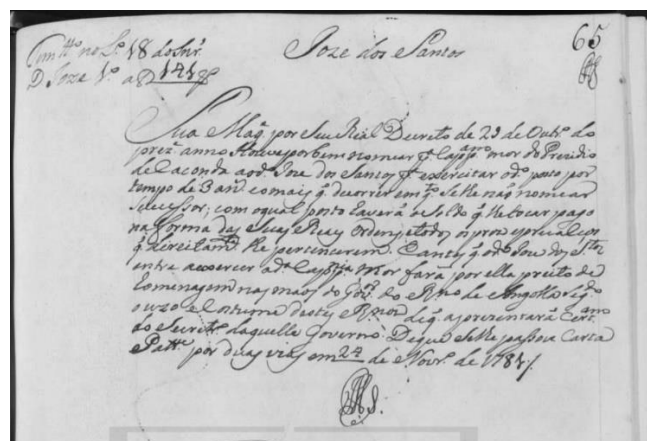 65
Joze dos Santos
no L.º 18 do Snr.
D. Joze 1.º a 141
Sua Mag.e por Seu Real Decreto de 29 de Outr.º do
prez.e anno Houve por bem nomear p.ª Capp.am mor do Prezidio
de Caconda ao d.º Joze dos Santos p.ª exercitar o d.º posto por
tempo de 3 an.s e o mais q. decorrer em q.to Se lhe não nomear
sucessor; com o qual posto haverá o Soldo q. lhe tocar pago
na forma das Suas Reaes Ordens, e todos os proes e precalços
q. direitam.te lhe pertencerem. E antes q. o d.º Joze dos S.tos
entre a exercer a d.ª Capp.nia Mor fará por ella preito de
homenagem nas mãos do Gov.or do Rno de Angolla seg.do
o uzo e costume deste Rnos de q. aprezentará Cert.am
do Secret.º daquelle Governo. De que se lhe passou Carta
Patt.e por duas vias em 24 de Novr.º de 1784